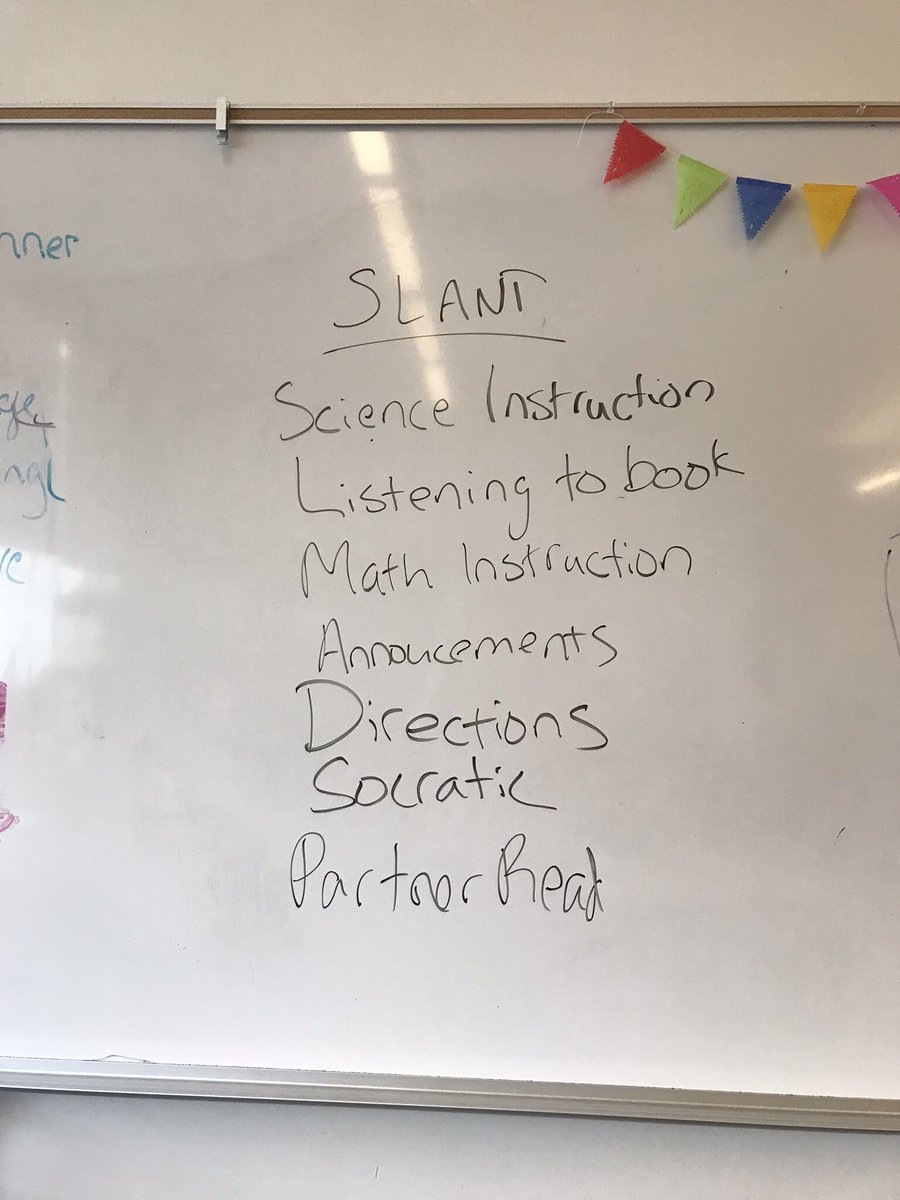 SLANT
Science Instruction
Listening to book
Math Instruction
Annoucements
Directions
Socratic
Partner Read